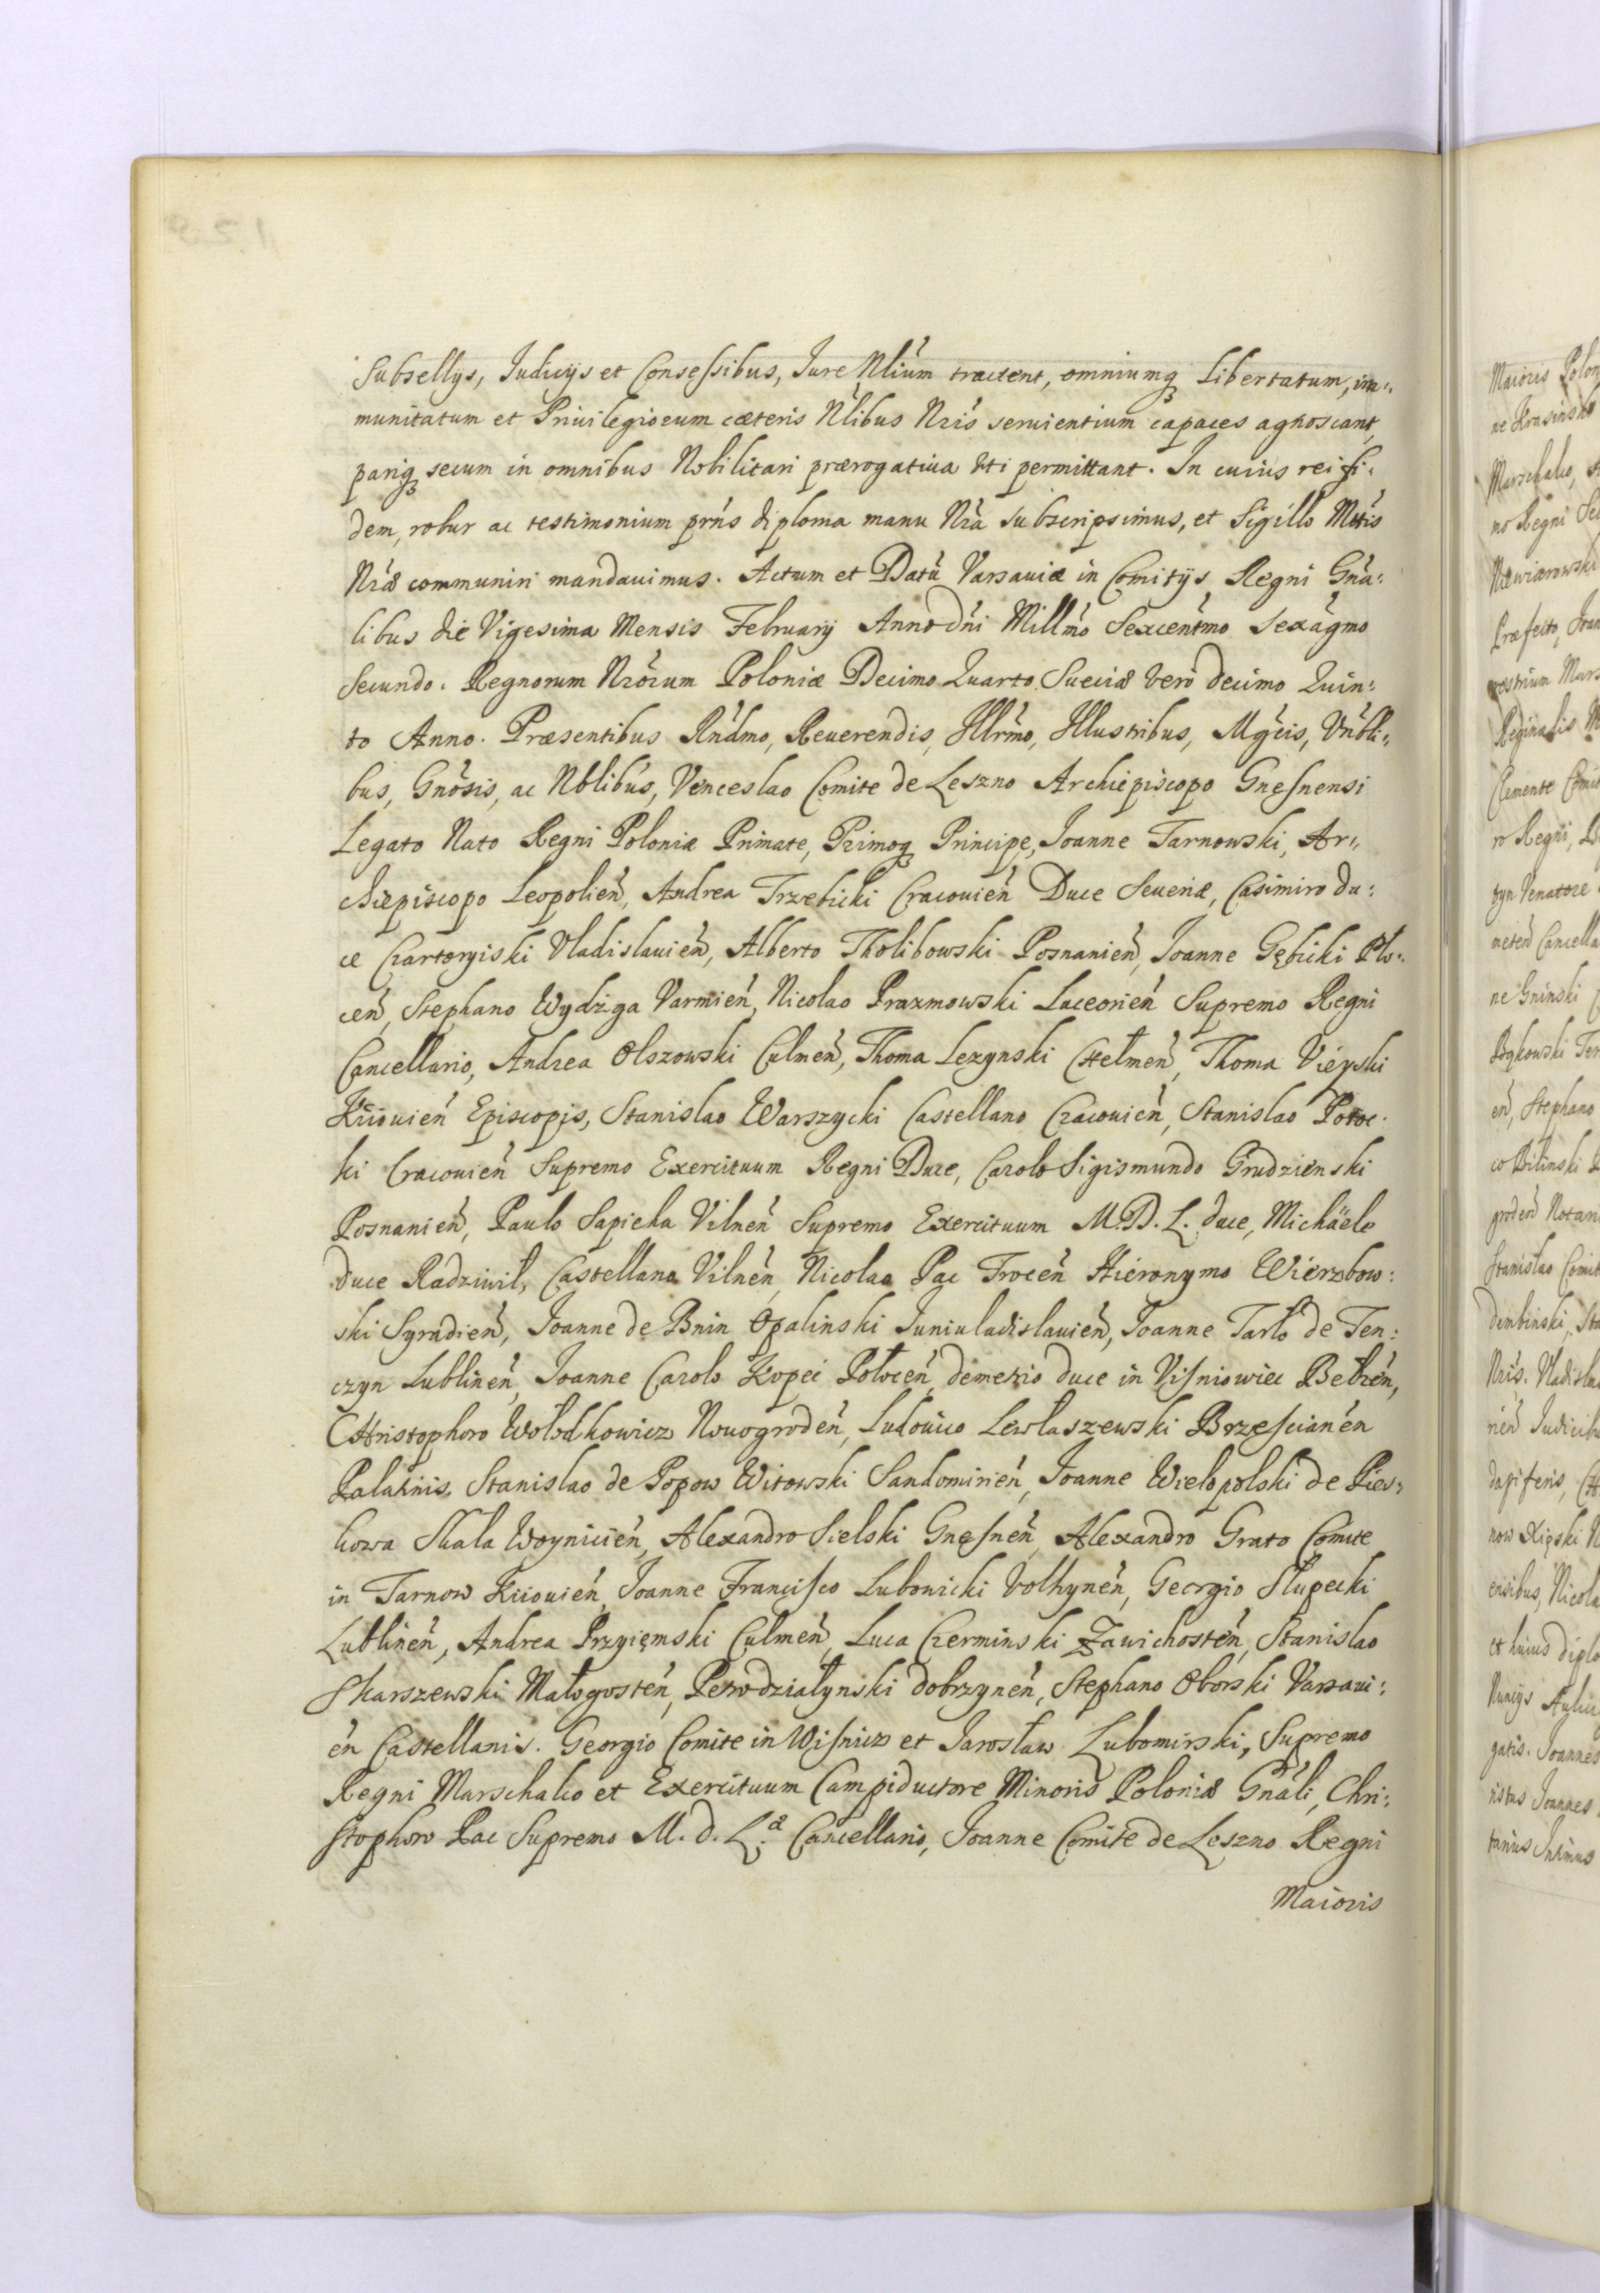 Subsellijs, Iudicijs et Consessibus, Iure Nliũm tractent, omniumq₃ Libertatum, im:
munitatum et Priuilegiorum cæteris Nlibus Nris seruientium capaces agnoscant,
pariq₃ secum in omnibus Nobilitari prærogatiua uti permittant. In cuius rei fi:
dem, robur ac testimonium prns diploma manu Nra subscripsimus, et Sigillo Mttis
Nræ communiri mandauimus. Actum et Datũ Varsauiæ in Comitijs Regni Gna:
libus die Vigesima Mensis February Anno dni Millmo Sexcentmo Sexagmo
Secundo. Regnorum Nrorum Poloniæ Decimo Quarto Sueciæ vero decimo Quin:
to Anno. Præsentibus Rndmo, Reuerendis, Illrmo, Illustribus, Mgcis, Vnbli:
bus, Gnosis, ac Nblibus, Venceslao Comite de Leszno Archiepiscopo Gnesnensi
Legato Nato Regni Poloniæ Primate, Primoq₃ Principe, Ioanne Tarnowski, Ar:
chiepiscopo Leopolien, Andrea Trzebicki Cracouien Duce Seueriæ, Casimiro du:
ce Czartoryiski Vladislauien, Alberto Tholibowski Posnanien, Ioanne Gębicki Plo:
cen, Stephano Wydżga Varmien, Nicolao Prazmowski Luceorien Supremo Regni
Cancellario, Andrea Olszowski Culmen, Thoma Lezynski Chełmen, Thoma Vieyski
Kiiouien Episcopis, Stanislao Warszycki Castellano Cracouien, Stanislao Potoc:
ki Cracouien Supremo Exercituum Regni Duce, Carolo Sigismundo Grudzienski
Posnanien, Paulo Sapieha Vilnen Supremo Exercituum M. D. L. duce, Michäele
duce Radziwil, Castellano Vilnen, Nicolao Pac Trocen Hieronymo Wierzbow:
ski Syradien, Ioanne de Bnin Opalinski Iuniuladislauien, Ioanne Tarło de Ten:
czyn Lublinen, Ioanne Carolo Kopeć Połocen, demetrio duce in Visniowiec Bełzen,
Christophoro Wołodkowicz Nouogroden, Ludouico Lewłaszewski Brzescianen
Palatinis, Stanislao de Popow Witowski Sandomirien, Ioanne Wielopolski de Pies:
kowa Skala Woynicien, Alexandro Sielski Gnesnen, Alexandro Grato Comite
in Tarnow Kiiouien, Ioanne Francisco Lubonicki Volhynen, Georgio Słupecki
Lublinen, Andrea Przyięmski Culmen, Luca Czerminski Zawichosten, Stanislao
Skarszewski Małogosten, Petro działynski dobrzynen, Stephano Oborski Varsaui:
en Castellanis. Georgio Comite in Wisnicz et Iarosław Lubomirski, Supremo
Regni Marschalco et Exercituum Campiductore Minoris Poloniæ Gnali, Chri:
stophoro Pac Supremo M. d. L. Cancellario, Ioanne Comite de Leszno Regni
Maioris